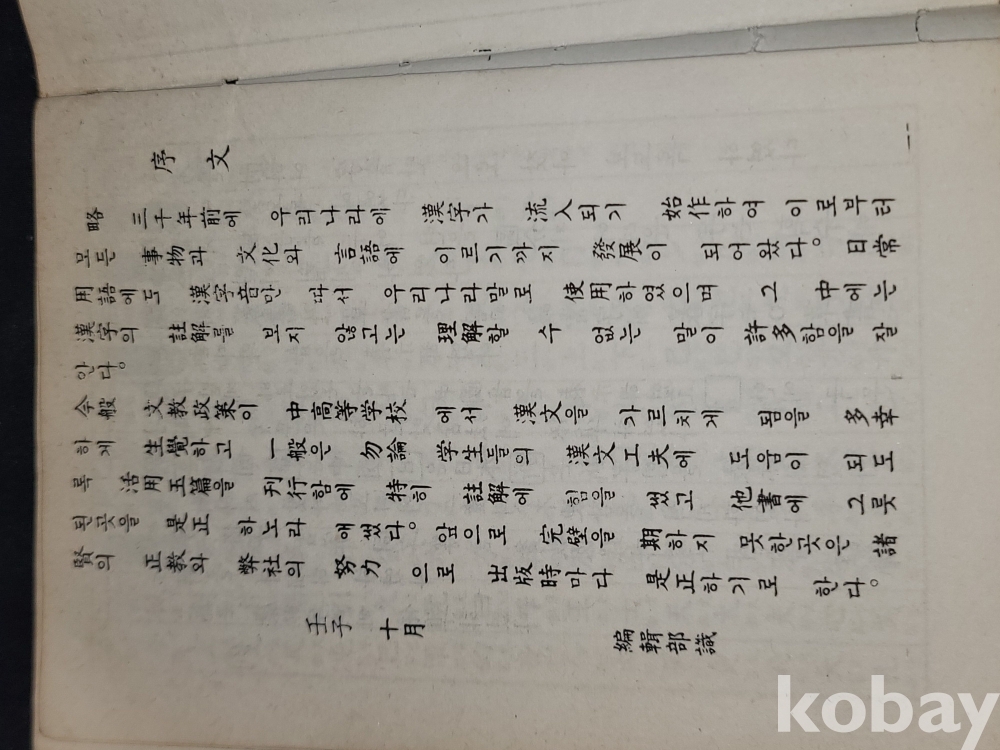 序文
略 三千年前에 우리나라에 漢字가 流入되기 始作하여 이로부터
모든 事物과 文化와 言語에 이르기까지 發展이 되어왔다。 日常
用語에도 漢字音만 따서 우리나라말로 使用하였으며 그 中에는
漢字의 註解를 보지 않고는 理解할 수 없는 말이 許多함을 잘
안다。
今般 文教政策이 中高等学校 에서 漢文을 가르치게 됨을 多幸
하게 生覺하고 一般은 勿論 学生들의 漢文工夫에 도움이 되도
록 活用玉篇을 刊行함에 特히 註解에 힘을 썼고 他書에 그릇
된곳을 是正 하노라 애썼다。 앞으로 完璧을 期하지 못한곳은 諸
賢의 正教와 弊社의 努力 으로 出版時마다 是正하기로 한다。
壬子 十月
編輯部識
kobay